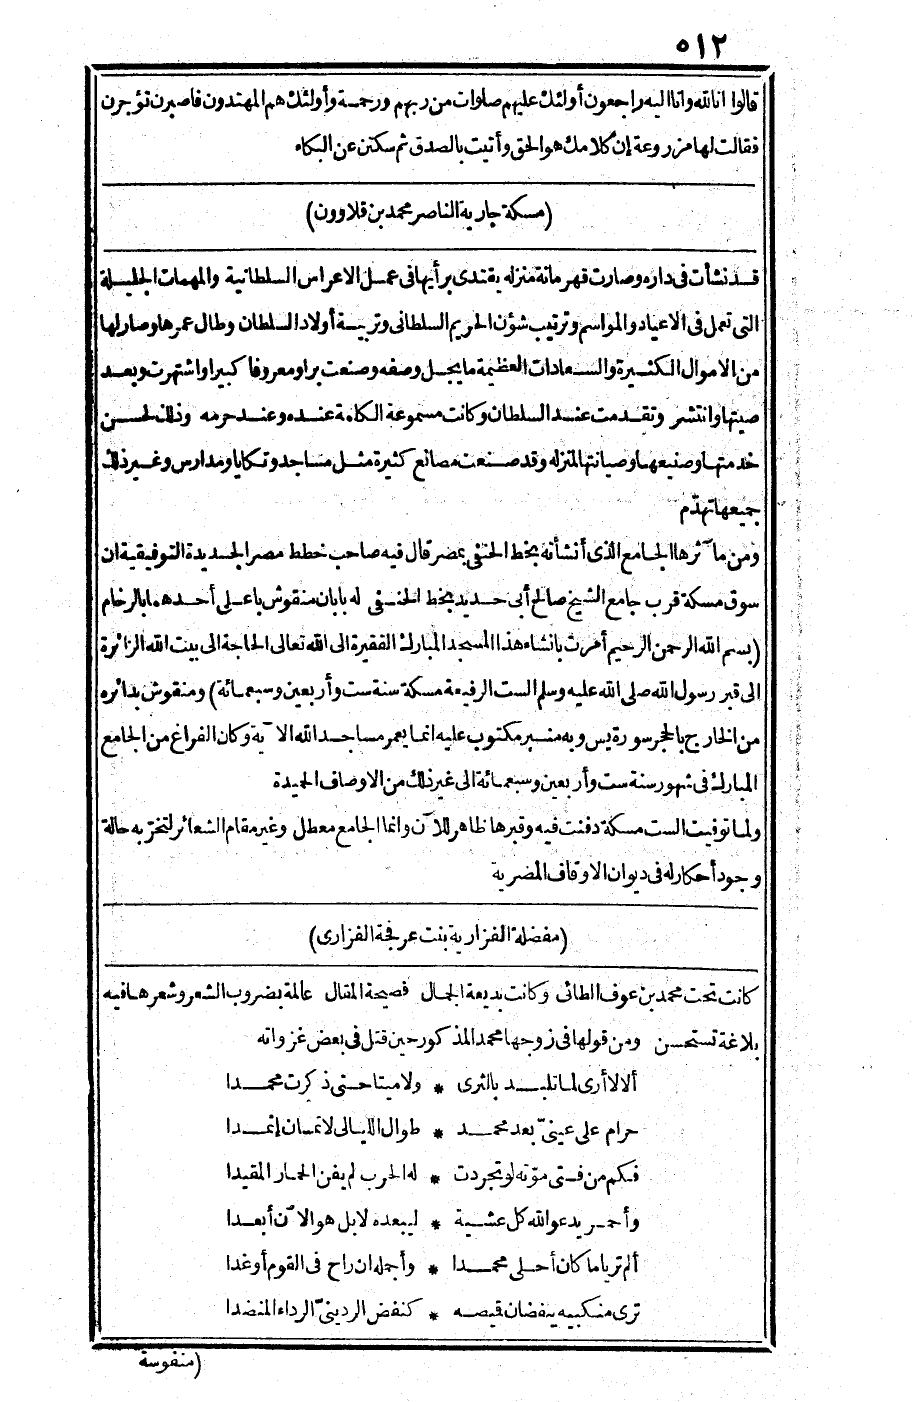 ٥١٢
قالوا انا لله وانا اليه راجعون أولئك عليهم صلوات من ربهم ورحمة وأولئك هم المهتدون فاصبرن تؤجرن
فقالت لها مزروعة إن كلامك هو الحق وأتيت بالصدق ثم سكتن عن البكاء
(مسكة جارية الناصر محمد بن قلاوون)
قد نشأت فى داره وصارت قهرمانة منزله يقتدى برأيها فى عمل الاعراس السلطانية والمهمات الجليلة
التى تعمل فى الاعياد والمواسم وترتيب شؤن الحريم السلطانى وتربية أولاد السلطان وطال عمرها وصار لها
من الاموال الكثيرة والسعادات العظيمة ما يجل وصفه وصنعت برا ومعروفا كبيرا واشتهرت وبعد
صيتها وانتشر وتقدمت عند السلطان وكانت مسموعة الكلمة عنده وعند حرمه وذلك لحسن
خدمتها وصنيعها وصيانتها لمنزله وقد صنعت مصانع كثيرة مثل مساجد وتكايا ومدارس وغير ذلك
جميعها تهدم
ومن مآثرها الجامع الذى أنشأته بخط الحنفى بمصر قال فيه صاحب خطط مصر الجديدة التوفيقية ان
سوق مسكة قرب جامع الشيخ صالح أبى حديد بخط الحنفى له بابان منقوش باعلى أحدهما بالرخام
(بسم الله الرحمن الرحيم أمرت بانشاء هذا المسجد المبارك الفقيرة الى الله تعالى الحاجة الى بيت الله الزائرة
الى قبر رسول الله صلى الله عليه وسلم الست الرفيعة مسكة سنة ست وأربعين وسبعمائة) ومنقوش بدائره
من الخارج بالحجر سورة يس وبه منبر مكتوب عليه انما يعمر مساجد الله الآية وكان الفراغ من الجامع
المبارك فى شهور سنة ست وأربعين وسبعمائة الى غير ذلك من الاوصاف الحميدة
ولما توفيت الست مسكة دفنت فيه وقبرها ظاهر للآن وانما الجامع معطل وغير مقام الشعائر لتخربه حالة
وجود أحكار له فى ديوان الاوقاف المصرية
(مفضلة الفزارية بنت عرفجة الفزارى)
كانت تحت محمد بن عوف الطائى وكانت بديعة الجمال فصيحة المقال عالمة بضروب الشعر وشعرها فيه
بلاغة تستحسن ومن قولها فى زوجها محمد المذكور حين قتل فى بعض غزواته
ألا لا أرى لما تلبد بالثرى * ولا ميتا حتى ذكرت محمدا
حرام على عينىّ بعد محمد * طوال الليالى لا تمسان اثمدا
فكم من فتى موته لو تجردت * له الحرب لم يفن الحمار المقيدا
وأحمر يدعو الله كل عشية * ليبعده لا بل هو الآن أبعدا
ألم تريا ما كان أحلى محمدا * وأجمله ان راح فى القوم أو غدا
ترى منكبيه ينفضان قميصه * كنفض الردينىّ الرداء المنضدا
(منفوسة